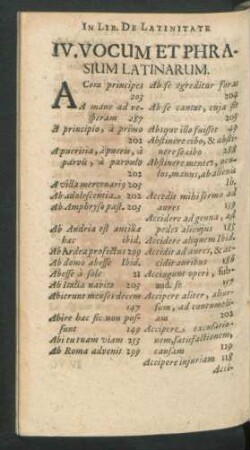 IN LIB. DE LATINITATE
IV. VOCUM ET PHRA-
SIUM LATINARUM.
A Cera principes
203
A mane ad ve-
speram 287
A principio, à primo
202
A pueritia, à puero, à
parvu, à parvulo
202
A villa mercenarij 205
Ab adolescentia. 202
Ab Amphryso past. 203
Ab Andria est ancilla
hac ibid.
Ab Ardea profectus 299
Ab domo abesse Ibid.
Abesse à sole 21
Ab Italia navita 203
Abierunt menses decem
147
Abire hac sic non pos-
sunt 149
Abi tu tuam viam 255
Ab Roma advenit 299
Ab se egreditur foras
204
Ab se cantat, cuja sit
205
Absque illo fuisset 49
Abstinere cibo, & absti-
nere se cibo 288
Abstinere mentes, ocu-
los, manus, ab alienis
ib.
Accedit mihi sermo ad
aures 159
Accidere ad genua, ad
pedes alicujus 185
Accidere aliquem Ibid.
Accidit ad aures, & ac-
cidit auribus 158
Accingunt operi, sub-
aud. se 157
Accipere aliter, abur-
sum, ad contumeli-
202
Accipere excusatio-
nem, satisfactionem,
causam 119
Accipere injuriam 118
Acci-